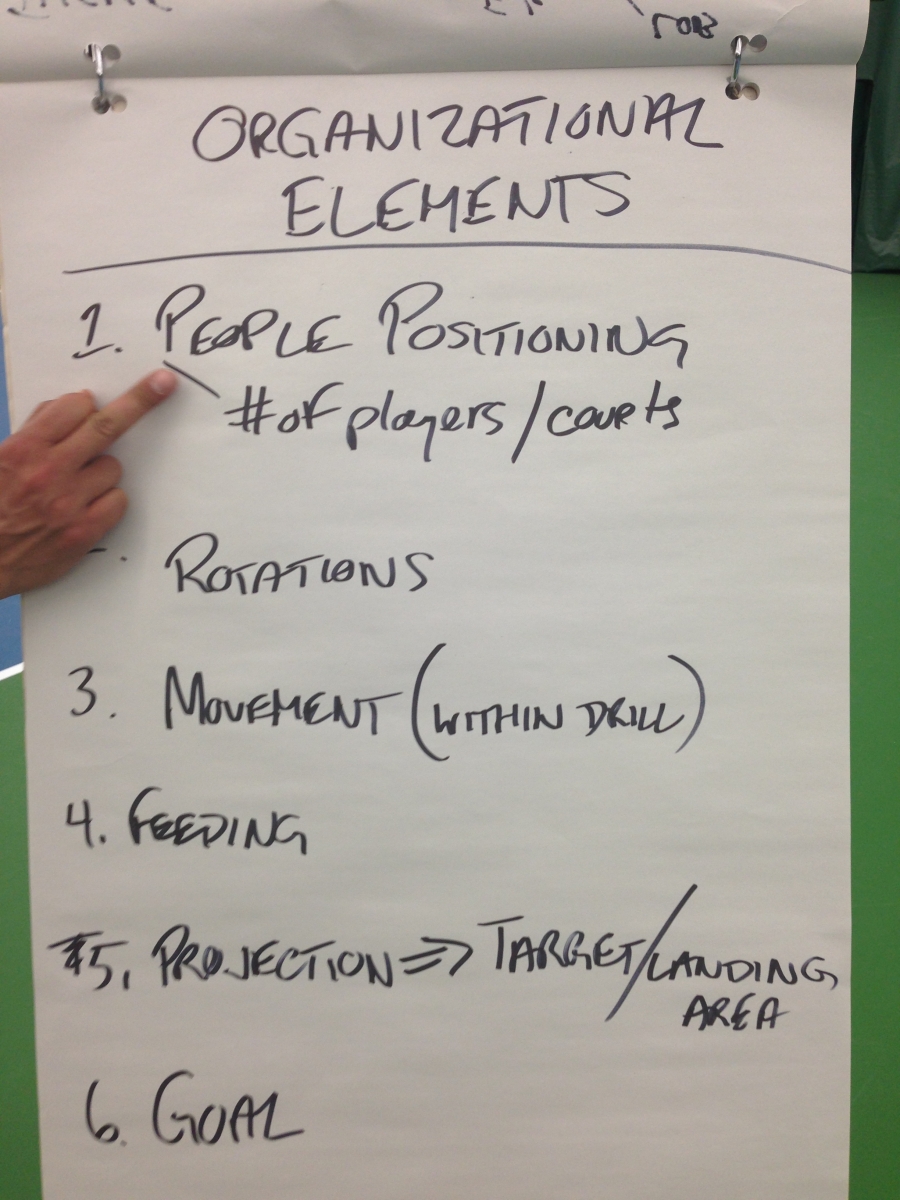 ORGANIZATIONAL
ELEMENTS
1. PEOPLE POSITIONING
# of players/courts
. ROTATIONS
3. MOVEMENT (WITHIN DRILL)
4. FEEDING
5. PROJECTION ⇒ TARGET/LANDING
AREA
6. GOAL